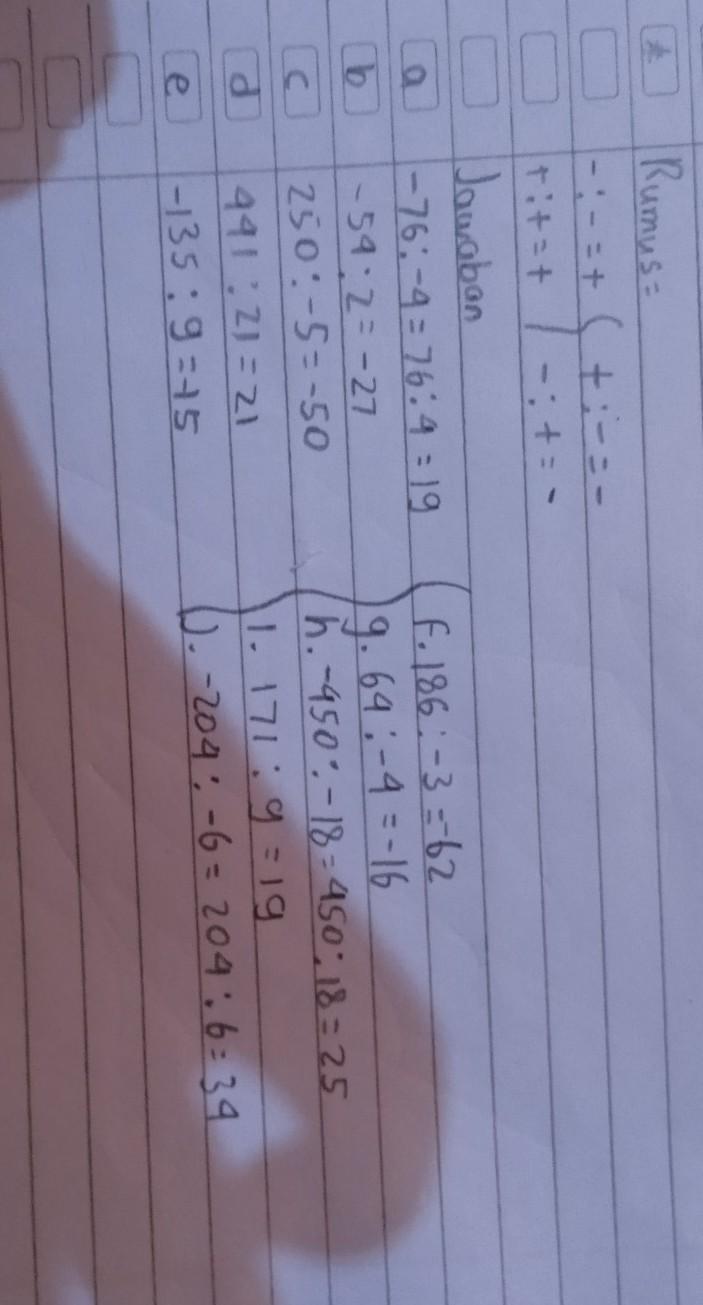 * Rumus =
- : - = + ( + : - = -
+ : + = + ) - : + = -
Jawaban
a -76 : -4 = 76 : 4 = 19
b -54 : 2 = -27
c 250 : -5 = -50
d 441 : 21 = 21
e -135 : 9 = -15
f. 186 : -3 = -62
g. 64 : -4 = -16
h. -450 : -18 = 450 : 18 = 25
I. 171 : 9 = 19
J. -204 : -6 = 204 : 6 = 34